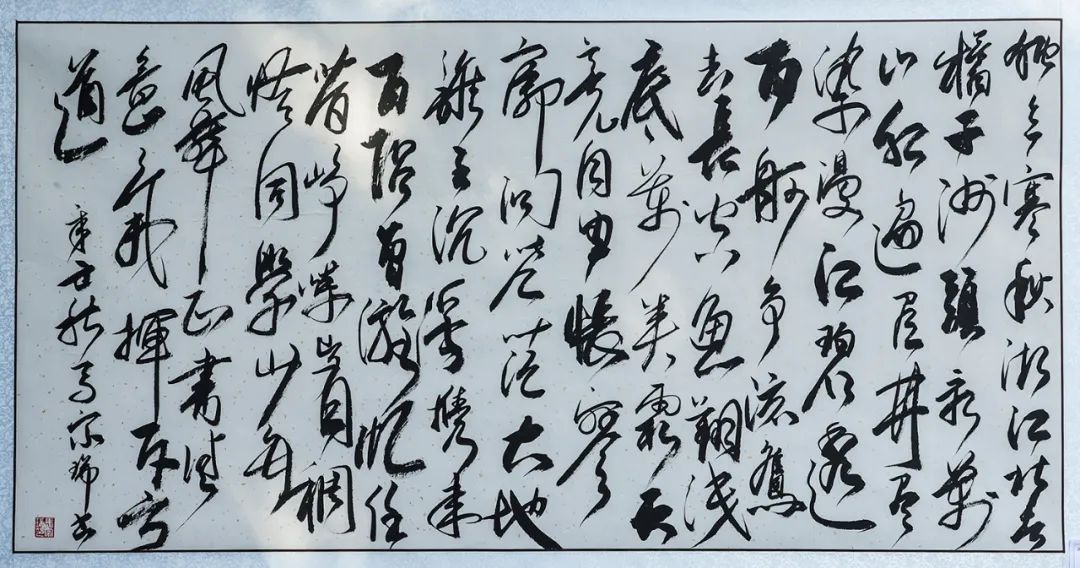 独立寒秋湘江北去
橘子洲頭看萬
山红遍层林尽
染漫江碧透
百舸争流鷹
击長空魚翔浅
底萬类霜天
竞自由悵寥
廓问苍茫大地
谁主沉浮携来
百侣曾遊忆往
昔峥嵘岁月稠
恰同學少年
風華正書生
意气揮斥方
遒
庚子秋宗瑞书